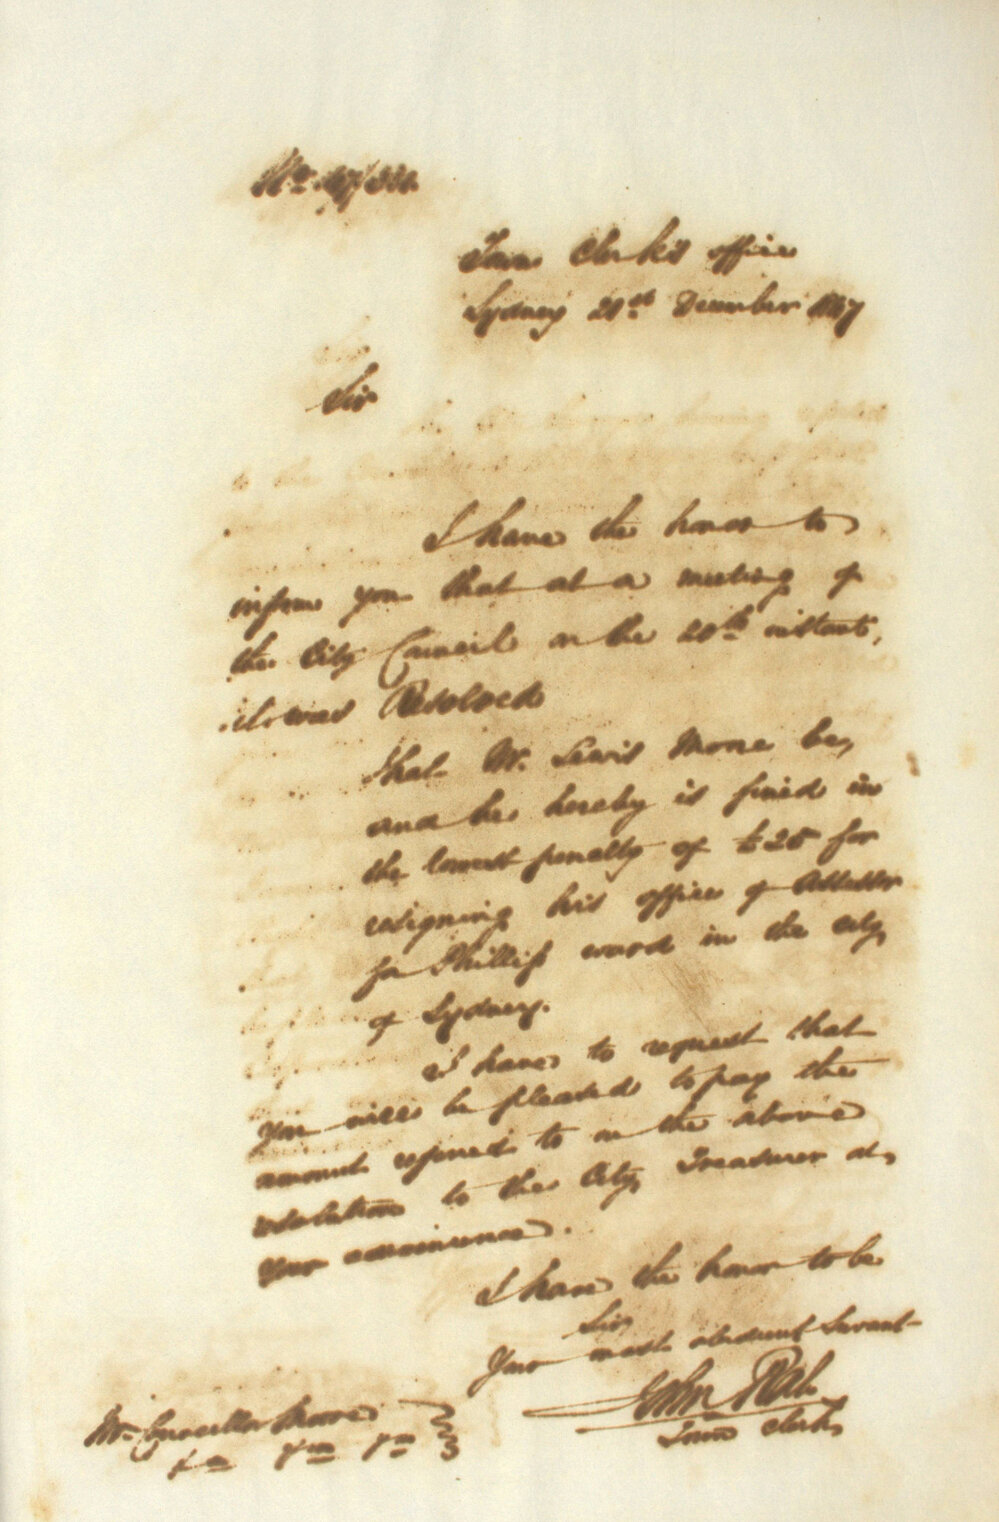 No. 47/331.
Town Clerk's office
Sydney 21st December 1847
Sir
I have the honor to
inform you that at a meeting of
the City Council on the 20th instant,
it was Resolved
That Mr. Lewis Moore be,
and he hereby is fined in
the lowest penalty of £25 for
resigning his office of Assessor
for Phillip ward in the city
of Sydney.
I have to request that
you will be pleased to pay the
amount referred to in the above
resolution to the City Treasurer at
your convenience.
I have the honor to be
Sir
Your most obedient Servant
John Rae
Town Clerk
Mr. Councillor Moore